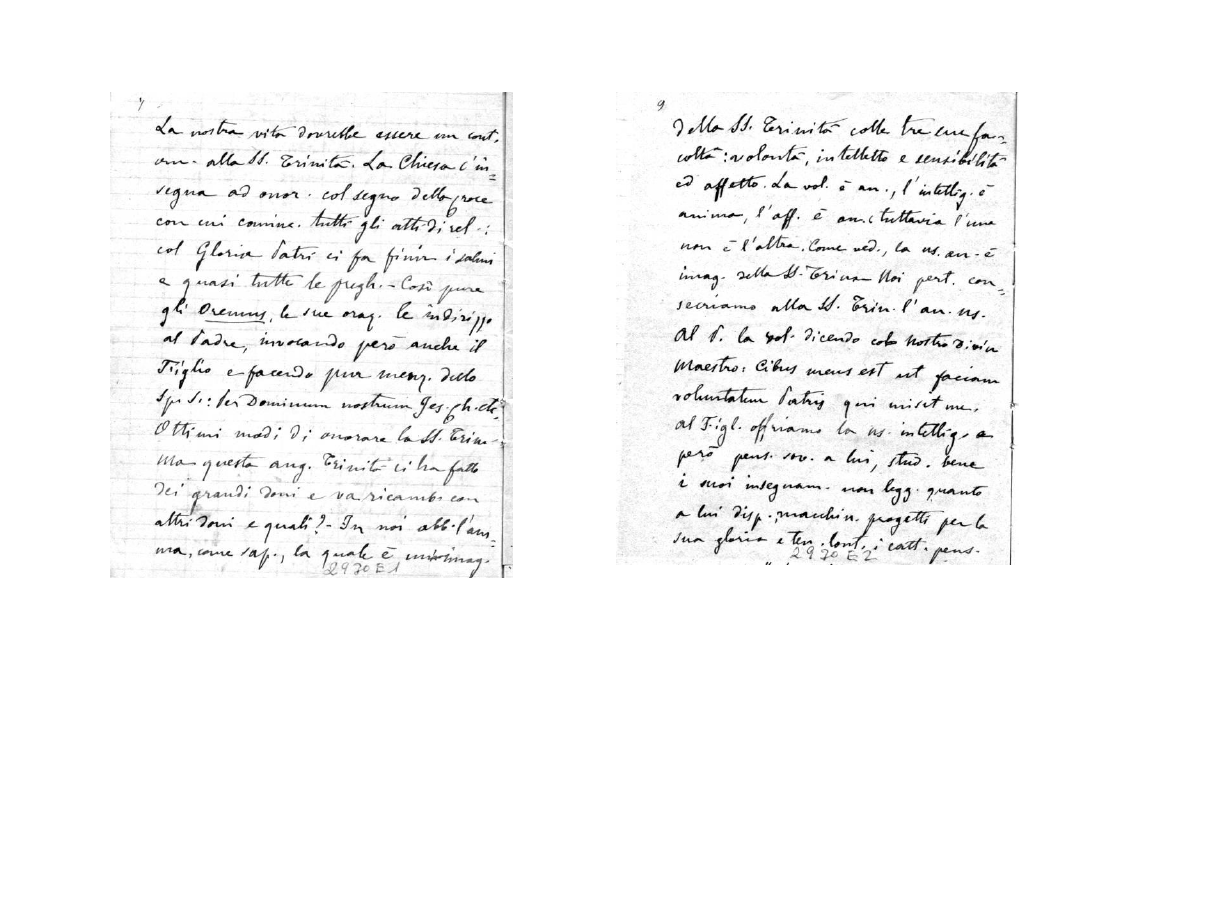 7
La nostra vita dovrebbe essere un cont.
om- alla SS. Trinità. La Chiesa c'in=
segna ad onor. col segno della croce
con cui cominc. tutti gli atti di rel.:
col Gloria Patri ci fa finir i salmi
e quasi tutte le pregh. - Così pure
gli Oremus, le sue oraz. le indirizza
al Padre, invocando però anche il
Figlio e facendo pur menz. dello
Sp. S.: Per Dominum nostrum Jes. Ch. etc.
Ottimi modi di onorare la SS. Trin.-
Ma questa aug. Trinità ci ha fatto
dei grandi doni e va ricamb. con
altri doni e quali? - In noi abb. l'ani=
ma, come sap., la quale è imag.
2970 E1
9
della SS. Trinità colle tre sue fa=
coltà: volontà, intelletto e sensibilità
ed affetto. La vol. è an., l'intellig. è
anima, l'aff. è an.; tuttavia l'una
non è l'altra. Come ved., la ns. an. è
imag. della SS. Trina - Noi pert. con=
secriamo alla SS. Trin. l'an. ns.
Al P. la vol. dicendo col nostro Divin
Maestro: Cibus meus est ut faciam
voluntatem Patris qui misit me.
al Figl. offriamo la ns. intellig. e
però pens. sov. a lui, stud. bene
i suoi insegnam. non legg. quanto
a lui disp., macchin. progetti per la
sua gloria e ten. lont. i catt. pens.
2970 E2